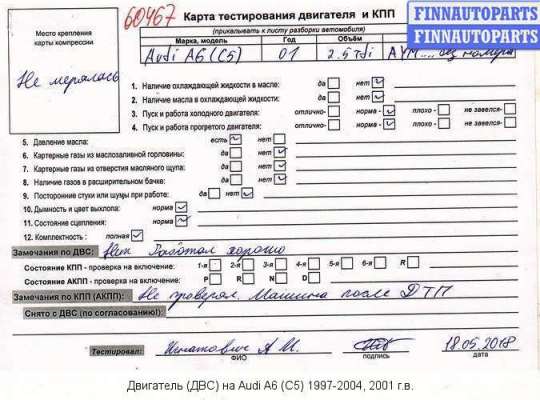 60467
Карта тестирования двигателя и КПП
(прикалывать к листу разборки автомобиля)
FINNAUTOPARTS
FINNAUTOPARTS
Место крепления
карты компрессии
Не мерялась
Марка, модель Год Объём
Audi A6 (C5) 01 2.5 tdi AYM.... без номера
1. Наличие охлаждающей жидкости в масле: да нет
2. Наличие масла в охлаждающей жидкости: да нет
3. Пуск и работа холодного двигателя: отлично- норма - плохо - не завелся-
4. Пуск и работа прогретого двигателя: отлично- норма - плохо - не завелся-
5. Давление масла: есть нет
6. Картерные газы из маслозаливной горловины: да нет
7. Картерные газы из отверстия масляного щупа: да нет
8. Наличие газов в расширительном бачке: да нет
9. Посторонние стуки или шумы при работе: да нет
10. Дымность и цвет выхлопа: норма
11. Состояние сцепления: норма
12. Комплектность : полная
Замечания по ДВС: Нет Работал хорошо
Состояние КПП - проверка на включение: 1-я 2-я 3-я 4-я 5-я 6-я R
Состояние АКПП - проверка на включение: P R N D
Замечания по КПП (АКПП): Не проверял. Машина после ДТП
Снято с ДВС (по согласованию!):
Тестировал: Игнатович А М. 18.05.2018
ФИО подпись дата
Двигатель (ДВС) на Audi A6 (C5) 1997-2004, 2001 г.в.